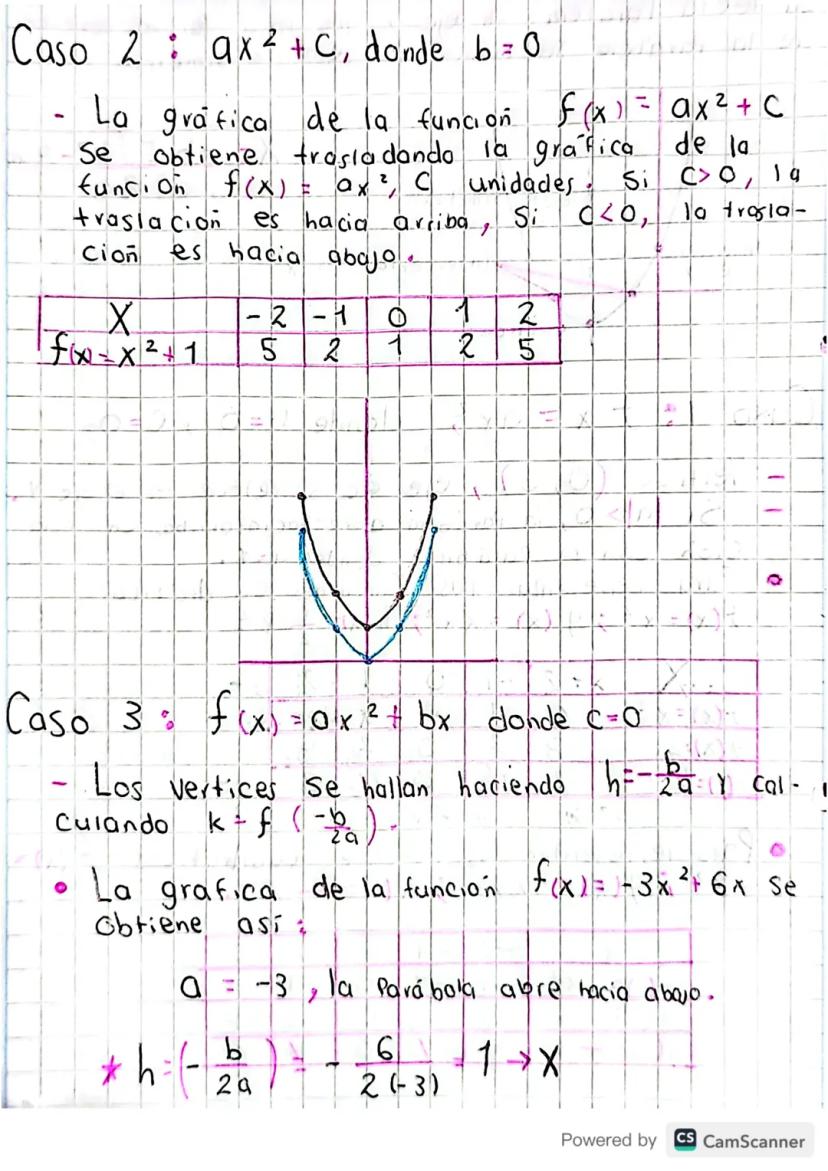 Caso 2 : ax² + C, donde b = 0
- La gráfica de la función f(x) = ax² + C
se obtiene trasladando la gráfica de la
función f(x) = ax², C unidades. Si C>0, la
traslación es hacia arriba, Si C<0, la trasla-
ción es hacia abajo.
X -2 -1 0 1 2
f(x)=x²+1 5 2 1 2 5
Caso 3 : f(x) = ax² + bx donde C=0
- Los vertices se hallan haciendo h=-b/2a y cal-
culando k = f (-b/2a).
• La grafica de la función f(x) = -3x² + 6x se
obtiene así :
a = -3 , la parábola abre hacia abajo.
* h=(-b/2a) = - 6/2(-3) = 1 → X
Powered by CS CamScanner